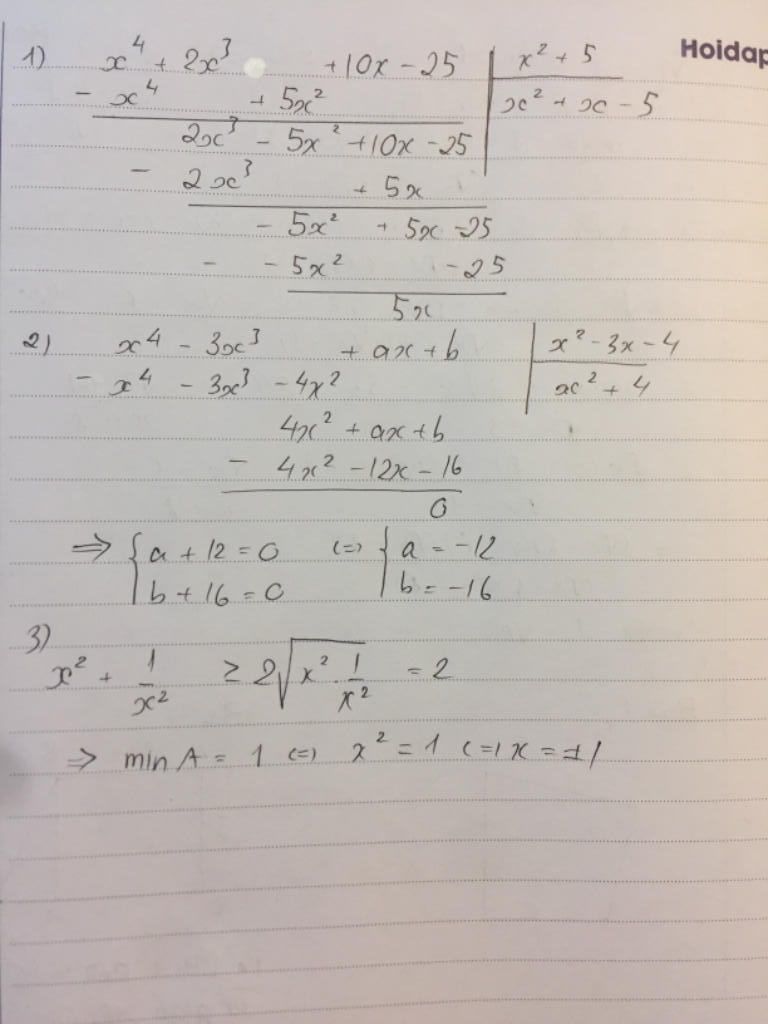 Hoidap
1) x⁴ + 2x³ + 10x - 25 | x² + 5
- x⁴ + 5x² | x² + x - 5
2x³ - 5x² + 10x - 25
- 2x³ + 5x
- 5x² + 5x - 25
- - 5x² - 25
5x
2) x⁴ - 3x³ + ax + b | x² - 3x - 4
- x⁴ - 3x³ - 4x² | x² + 4
4x² + ax + b
- 4x² - 12x - 16
0
⇒ { a + 12 = 0 (=) { a = -12
b + 16 = 0 b = -16
3)
x² + 1/x² ≥ 2√(x² . 1/x²) = 2
⇒ min A = 1 (=) x² = 1 (=) x = ±1